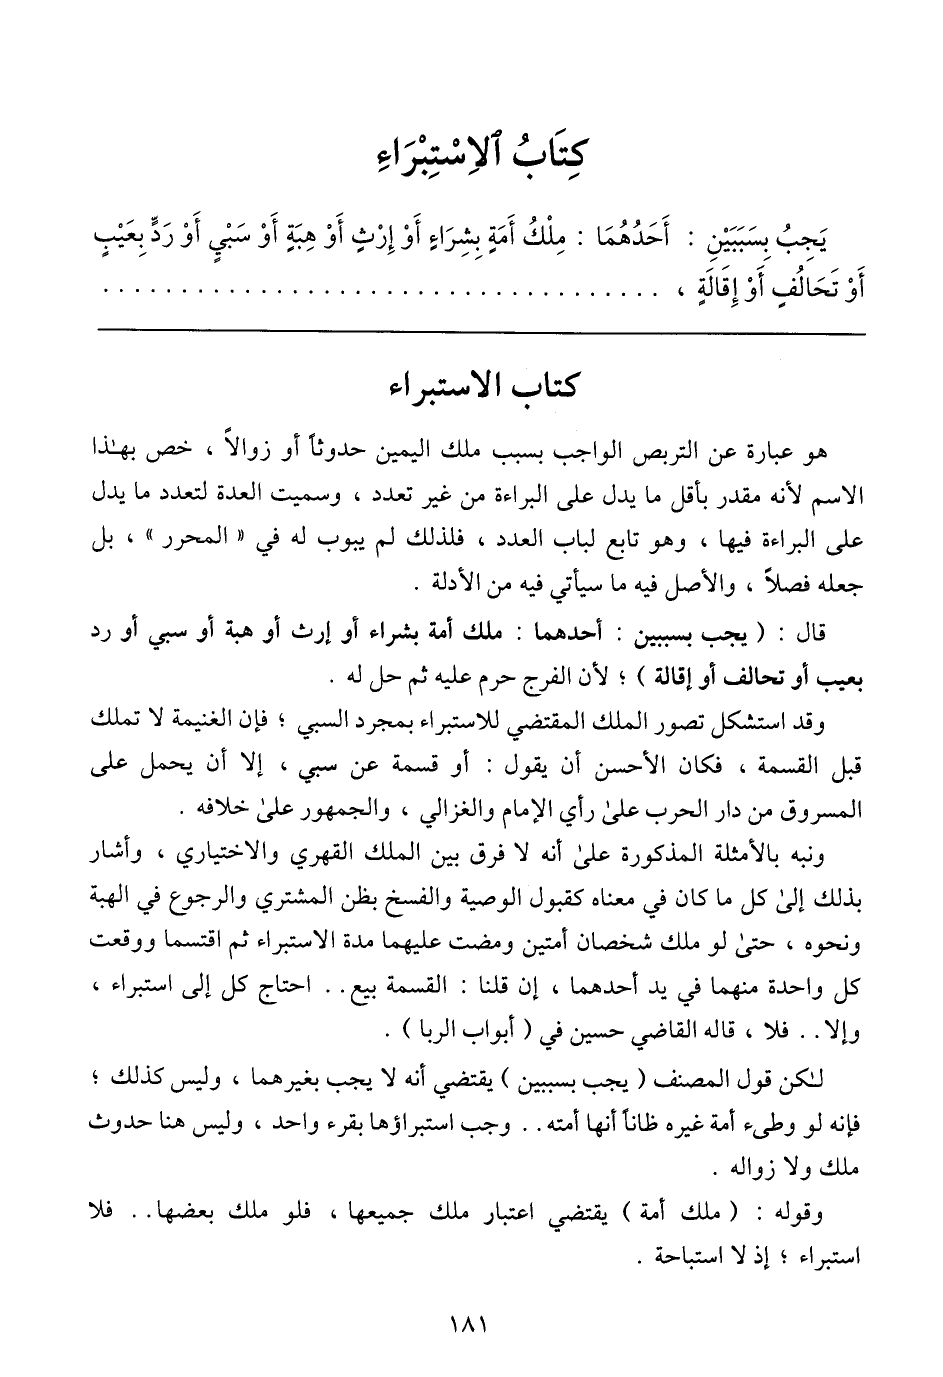 كِتَابُ ٱلِاسْتِبْرَاءِ
يَجِبُ بِسَبَبَيْنِ : أَحَدُهُمَا : مِلْكُ أَمَةٍ بِشِرَاءٍ أَوْ إِرْثٍ أَوْ هِبَةٍ أَوْ سَبْيٍ أَوْ رَدٍّ بِعَيْبٍ
أَوْ تَحَالُفٍ أَوْ إِقَالَةٍ ، . . . . . . . . . . . . . . . . . . . . . . . . . . . . . . . . . . . . .
كتاب الاستبراء
هو عبارة عن التربص الواجب بسبب ملك اليمين حدوثاً أو زوالاً ، خص بهـٰذا
الاسم لأنه مقدر بأقل ما يدل على البراءة من غير تعدد ، وسميت العدة لتعدد ما يدل
على البراءة فيها ، وهو تابع لباب العدد ، فلذلك لم يبوب له في « المحرر » ، بل
جعله فصلاً ، والأصل فيه ما سيأتي فيه من الأدلة .
قال : ( يجب بسببين : أحدهما : ملك أمة بشراء أو إرث أو هبة أو سبي أو رد
بعيب أو تحالف أو إقالة ) ؛ لأن الفرج حرم عليه ثم حل له .
وقد استشكل تصور الملك المقتضي للاستبراء بمجرد السبي ؛ فإن الغنيمة لا تملك
قبل القسمة ، فكان الأحسن أن يقول : أو قسمة عن سبي ، إلا أن يحمل على
المسروق من دار الحرب علىٰ رأي الإمام والغزالي ، والجمهور علىٰ خلافه .
ونبه بالأمثلة المذكورة علىٰ أنه لا فرق بين الملك القهري والاختياري ، وأشار
بذلك إلىٰ كل ما كان في معناه كقبول الوصية والفسخ بظن المشتري والرجوع في الهبة
ونحوه ، حتىٰ لو ملك شخصان أمتين ومضت عليهما مدة الاستبراء ثم اقتسما ووقعت
كل واحدة منهما في يد أحدهما ، إن قلنا : القسمة بيع . . احتاج كل إلى استبراء ،
وإلا . . فلا ، قاله القاضي حسين في ( أبواب الربا ) .
لـٰكن قول المصنف ( يجب بسببين ) يقتضي أنه لا يجب بغيرهما ، وليس كذلك ؛
فإنه لو وطىء أمة غيره ظاناً أنها أمته . . وجب استبراؤها بقرء واحد ، وليس هنا حدوث
ملك ولا زواله .
وقوله : ( ملك أمة ) يقتضي اعتبار ملك جميعها ، فلو ملك بعضها . . فلا
استبراء ؛ إذ لا استباحة .
١٨١